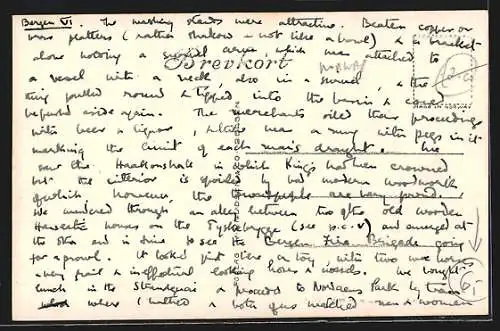 Bergen VI. The washing stands were attractive. Beaten copper or
brass platters (rather shallow - not like a bowl) & a bracket
alone holding a swivel arm, which was attached to
Brevkort
a vessel with a neck, also in a swivel, & the
thing pulled round & tipped into the basin & could
be pushed aside again. The merchants oiled their proceedings
with beer & liquor, which was a mug with pegs in it
marking the limit of each man's draught. We
saw the Haakonshalle in which Kings had been crowned
but the interior is spoiled by bad modern woodwork
of which however, the townspeople are very proud.
We wandered through an alley between two of the old wooden
Hanseatic houses on the Tyskebrygge (see p.c. V) and emerged at
the other end in time to see the Bergen Fire Brigade going
for a prowl. It looked just like a toy, with two
very frail & ineffectual looking hoses & . We bought
lunch in the & proceeded to Nordnes Park by tram
where I watched a both men & women